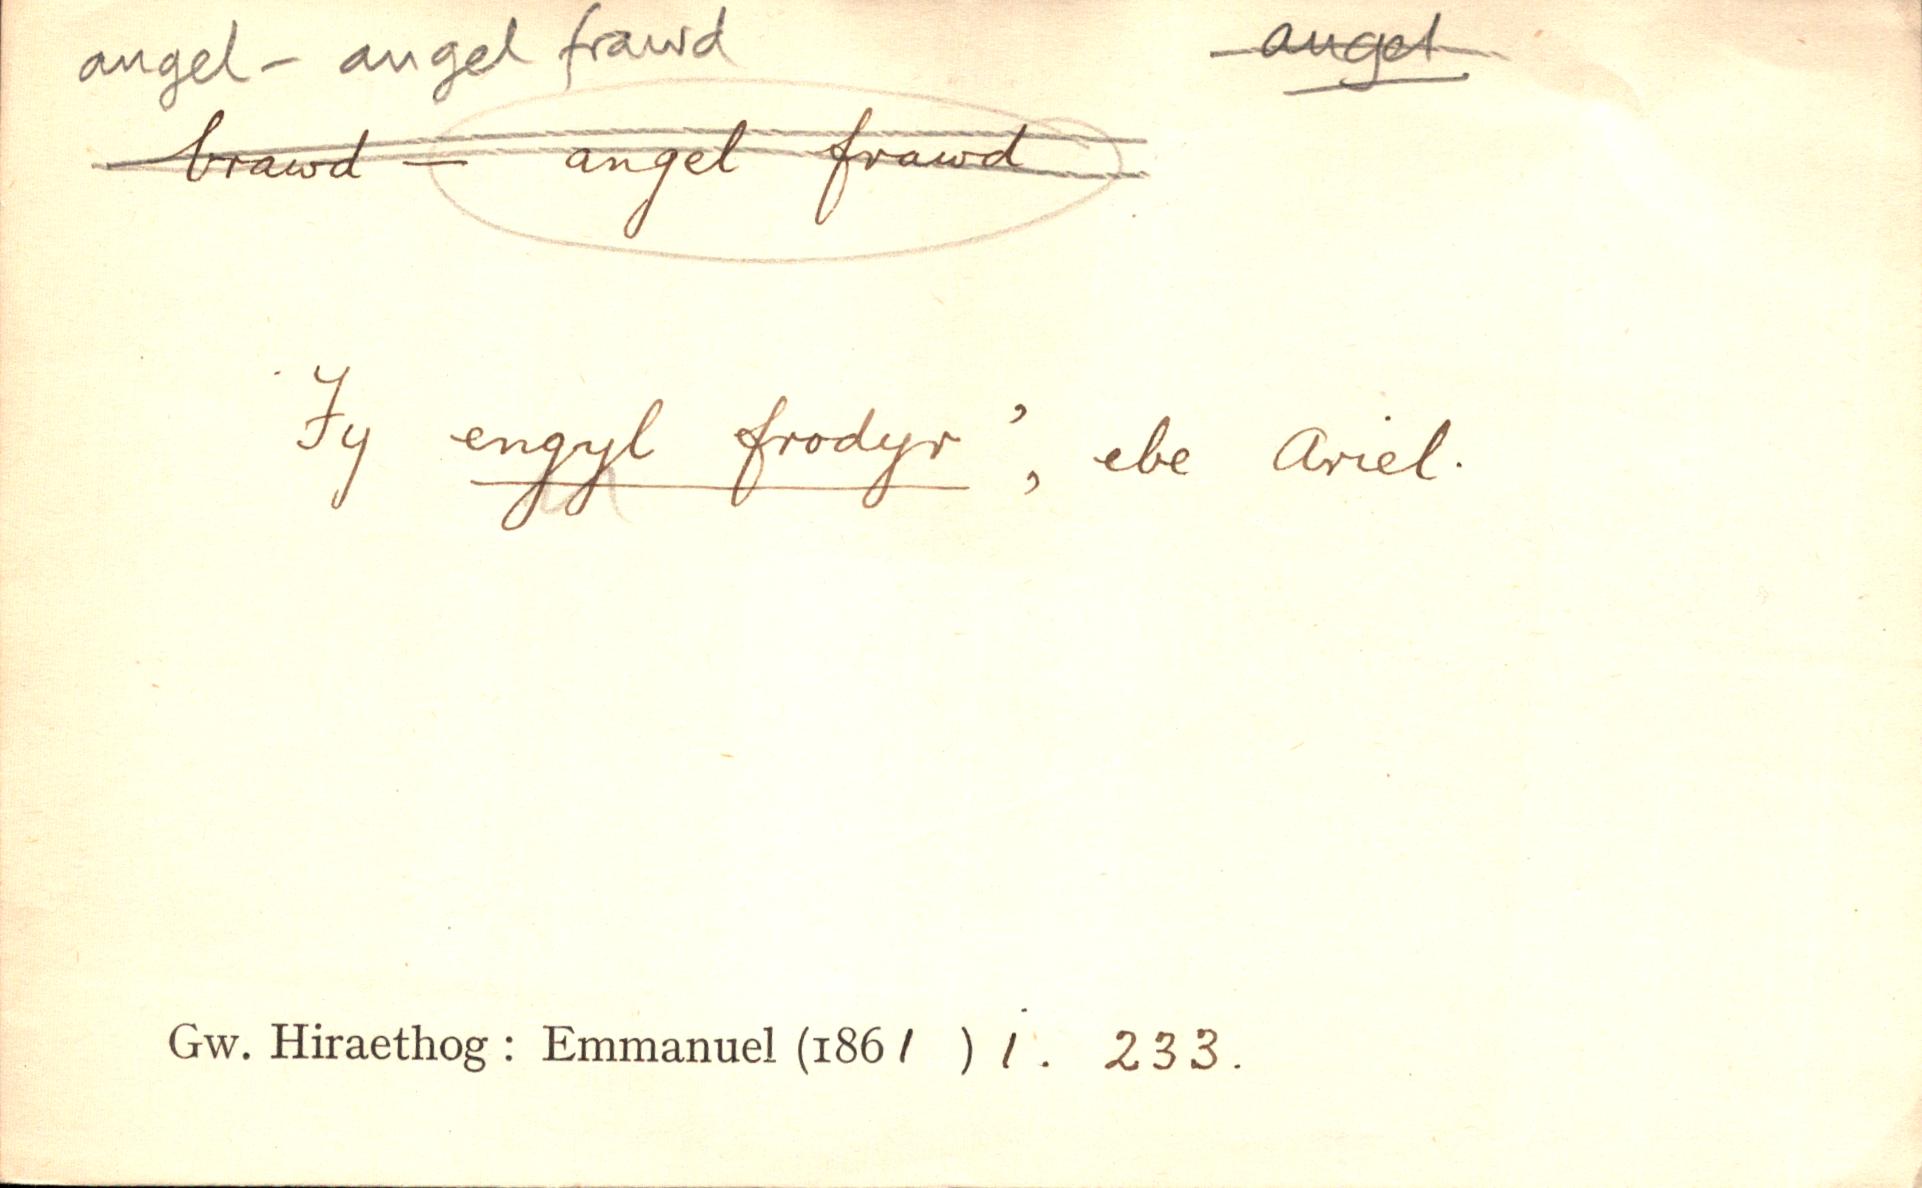 angel – angel frawd angel
brawd – angel frawd
Fy engyl frodyr’, ebe Ariel.
Gw. Hiraethog : Emmanuel (1861 ) i. 233.